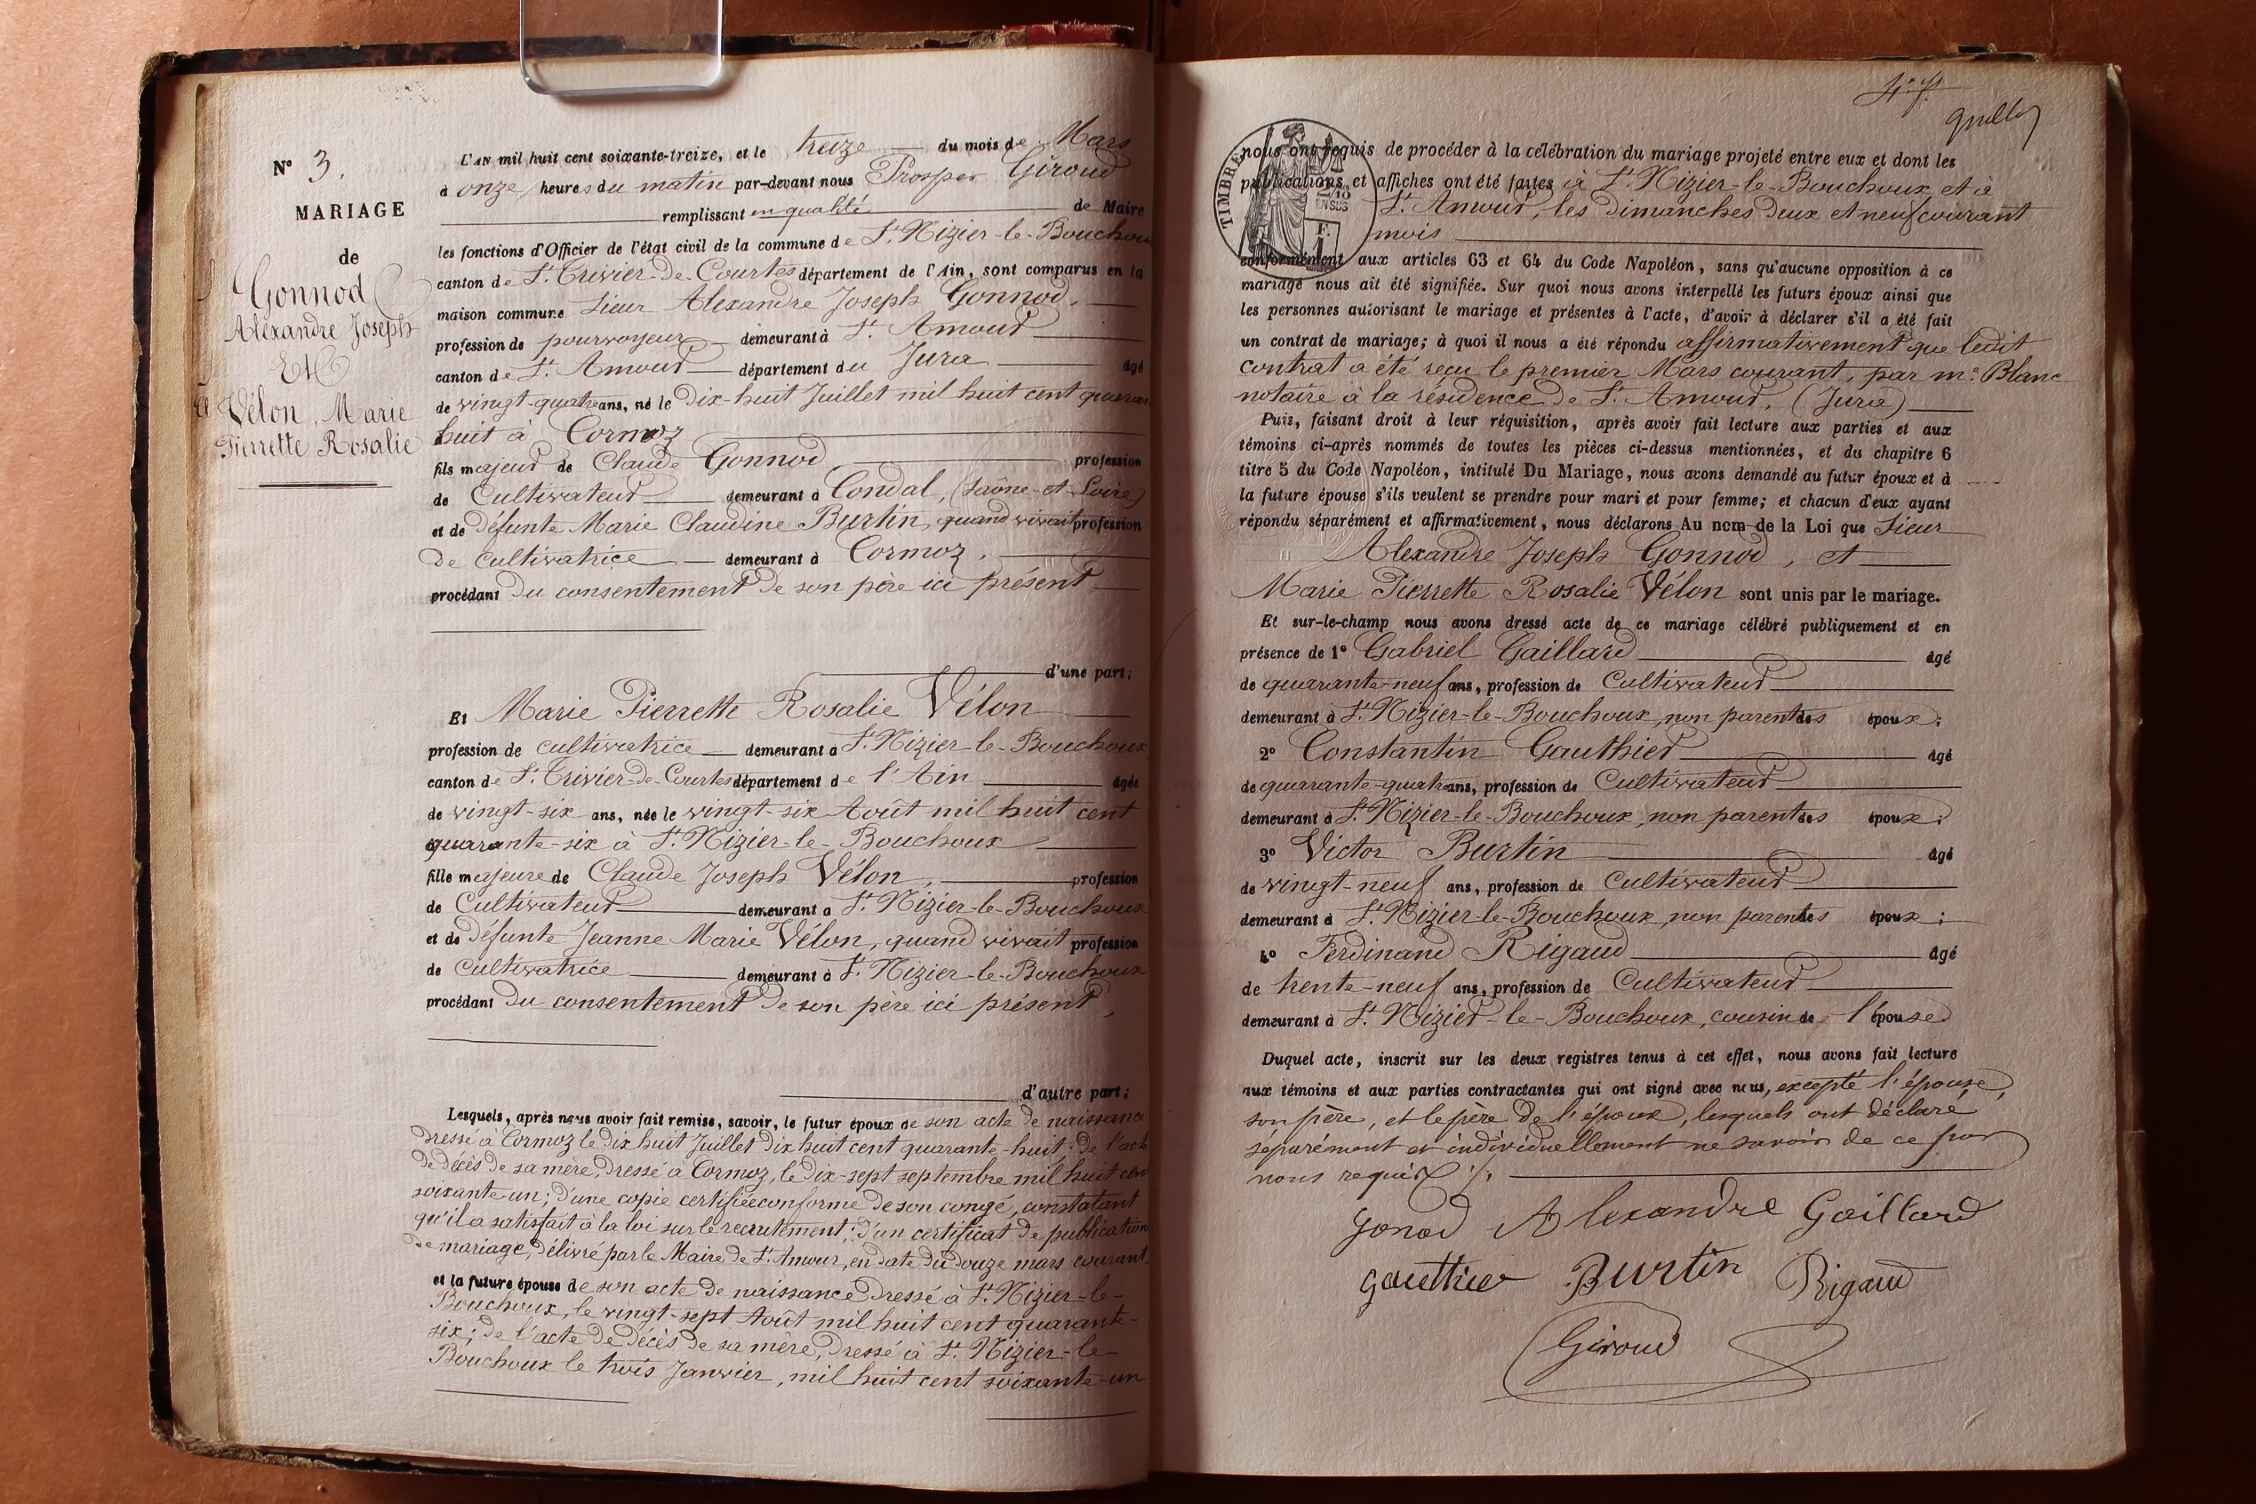 N° 3.
MARIAGE
de
Gonnod
Alexandre Joseph
Et
Vélon, Marie
Pierrette Rosalie
L'AN mil huit cent soixante-treize, et le treize du mois de Mars
à onze heures du matin par-devant nous Prosper Giroud
remplissant en qualité de Maire
les fonctions d'Officier de l'état civil de la commune de St. Nizier-le-Bouchoux
canton de St. Trivier-de-Courtes département de l'Ain, sont comparus en la
maison commune Sieur Alexandre Joseph Gonnod,
profession de pourvoyeur demeurant à St. Amour
canton de St. Amour département du Jura âgé
de vingt-quatre ans, né le dix-huit Juillet mil huit cent quarante
huit à Cormoz
fils majeur de Claude Gonnod profession
de Cultivateur demeurant à Condal, (Saône-et-Loire)
et de défunte Marie Claudine Burtin, quand vivait profession
de cultivatrice demeurant à Cormoz,
procédant du consentement de son père ici présent
d'une part;
Et Marie Pierrette Rosalie Vélon
profession de cultivatrice demeurant à St. Nizier-le-Bouchoux
canton de St. Trivier-de-Courtes département de l'Ain âgée
de vingt-six ans, née le vingt-six Août mil huit cent
quarante-six à St. Nizier-le-Bouchoux
fille majeure de Claude Joseph Vélon, profession
de Cultivateur demeurant à St. Nizier-le-Bouchoux
et de défunte Jeanne Marie Vélon, quand vivait profession
de Cultivatrice demeurant à St. Nizier-le-Bouchoux
procédant du consentement de son père ici présent,
d'autre part;
Lesquels, après nous avoir fait remise, savoir, le futur époux de son acte de naissance
dressé à Cormoz le dix huit Juillet dix huit cent quarante-huit; de l'acte
de décès de sa mère, dressé à Cormoz, le dix-sept septembre mil huit cent
soixante-un; d'une copie certifiée conforme de son congé, constatant
qu'il a satisfait à la loi sur le recrutement; d'un certificat de publication
de mariage, délivré par le Maire de St. Amour, en date du douze mars courant
et la future épouse de son acte de naissance dressé à St. Nizier-le-
Bouchoux, le vingt-sept Août mil huit cent quarante-
six; de l'acte de décès de sa mère, dressé à St. Nizier-le-
Bouchoux le trois Janvier, mil huit cent soixante-un
TIMBRE
nous ont requis de procéder à la célébration du mariage projeté entre eux et dont les
publications et affiches ont été faites à St. Nizier-le-Bouchoux et à
St. Amour, les dimanches deux et neuf courant
mois
conformément aux articles 63 et 64 du Code Napoléon, sans qu'aucune opposition à ce
mariage nous ait été signifiée. Sur quoi nous avons interpellé les futurs époux ainsi que
les personnes autorisant le mariage et présentes à l'acte, d'avoir à déclarer s'il a été fait
un contrat de mariage; à quoi il nous a été répondu affirmativement que ledit
contrat a été reçu le premier Mars courant, par me. Blanc
notaire à la résidence de St. Amour, (Jura)
Puis, faisant droit à leur réquisition, après avoir fait lecture aux parties et aux
témoins ci-après nommés de toutes les pièces ci-dessus mentionnées, et du chapitre 6
titre 5 du Code Napoléon, intitulé Du Mariage, nous avons demandé au futur époux et à
la future épouse s'ils veulent se prendre pour mari et pour femme; et chacun d'eux ayant
répondu séparément et affirmativement, nous déclarons Au nom de la Loi que Sieur
Alexandre Joseph Gonnod, et
Marie Pierrette Rosalie Vélon sont unis par le mariage.
Et sur-le-champ nous avons dressé acte de ce mariage célébré publiquement et en
présence de 1° Gabriel Gaillard âgé
de quarante-neuf ans, profession de Cultivateur
demeurant à St. Nizier-le-Bouchoux, non parent des époux;
2° Constantin Gauthier âgé
de quarante-quatre ans, profession de Cultivateur
demeurant à St. Nizier-le-Bouchoux, non parent des époux;
3° Victor Burtin âgé
de vingt-neuf ans, profession de Cultivateur
demeurant à St. Nizier-le-Bouchoux, non parent des époux;
4° Ferdinand Rigaud âgé
de trente-neuf ans, profession de Cultivateur
demeurant à St. Nizier-le-Bouchoux, cousin de l'épouse
Duquel acte, inscrit sur les deux registres tenus à cet effet, nous avons fait lecture
aux témoins et aux parties contractantes qui ont signé avec nous, excepté l'épouse,
son père, et le père de l'époux, lesquels ont déclaré
séparément et individuellement ne savoir de ce par
nous requis ./.
gonod Alexandre Gaillard
gauthier Burtin Rigaud
Giroud